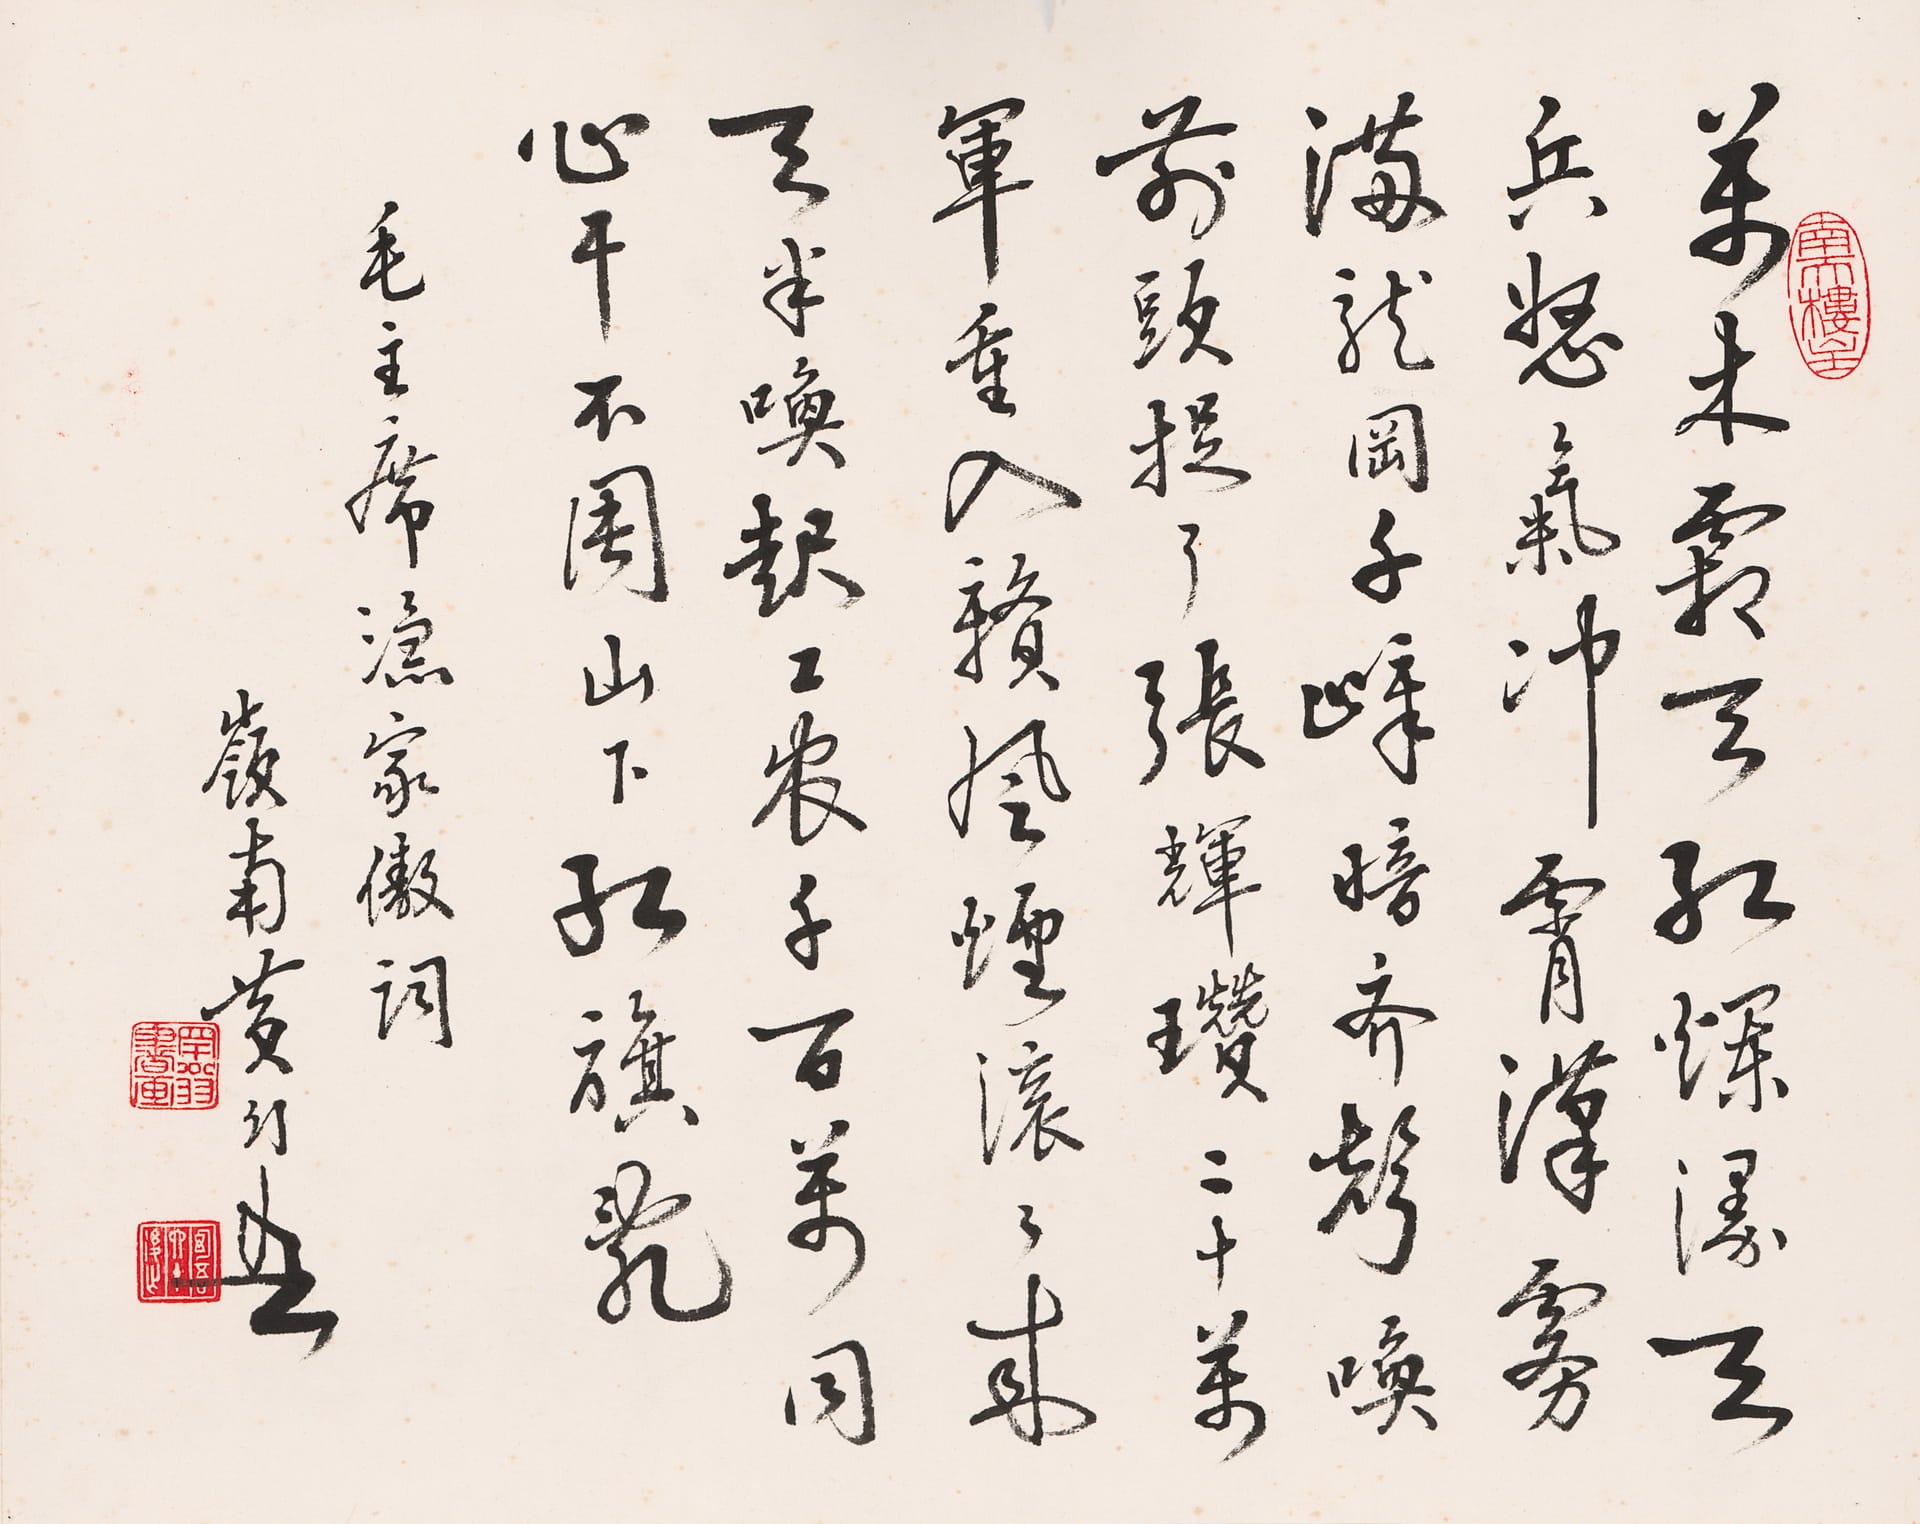 萬木霜天红爛漫天
兵怒氣冲霄漢霧
滿龍岡千嶂暗齐聲喚
前頭捉了張輝瓚二十萬
軍重入贛風煙滾々來
天半喚起工农千百萬同
心干不周山下红旗亂
毛主席漁家傲詞
嶺南黄幻吾
罕翁書畫